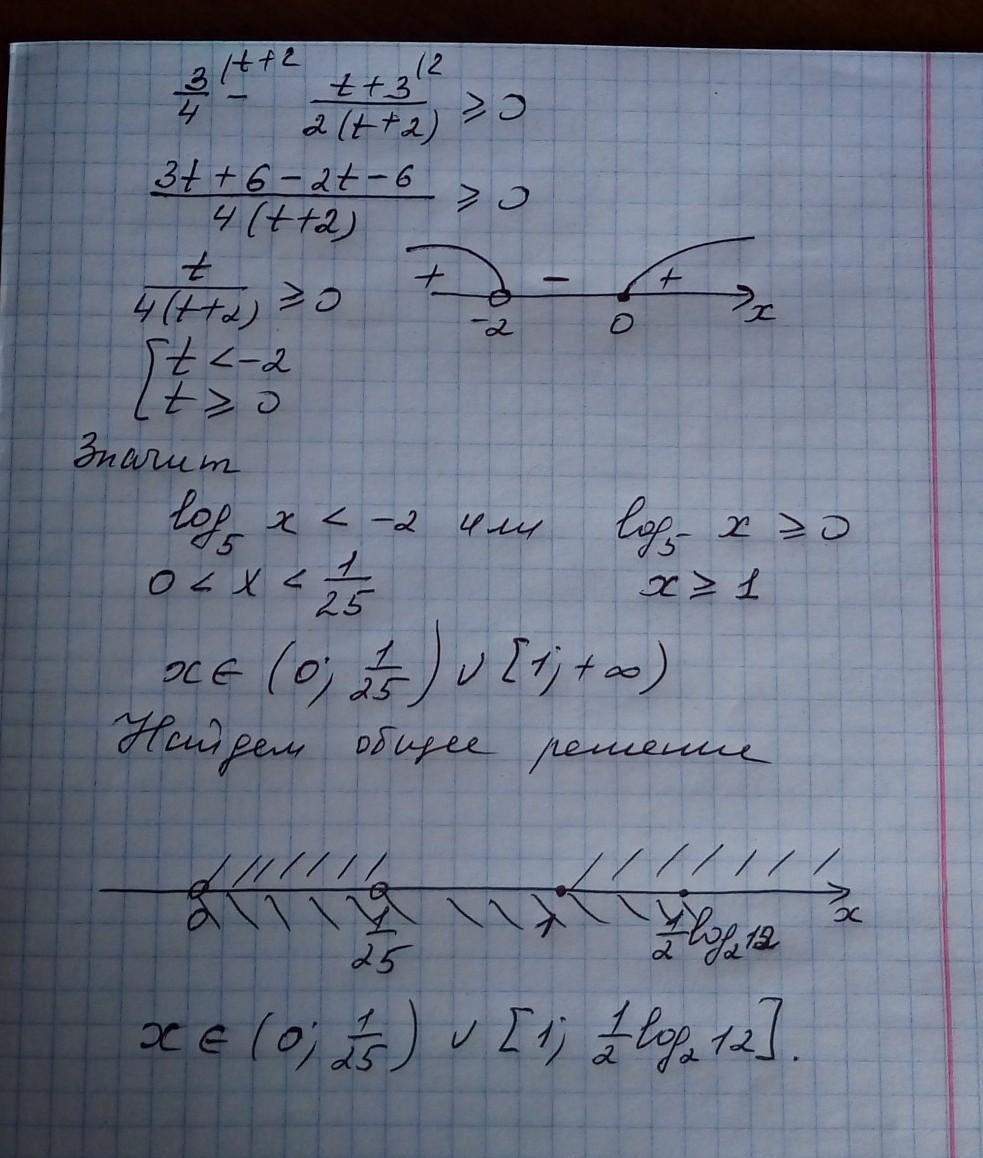 3/4 ⁽ᵗ⁺² − (t+3)⁽² / 2(t+2) ≥ 0
(3t + 6 − 2t − 6) / 4(t+2) ≥ 0
t / 4(t+2) ≥ 0
+ − +
-2 0 x
[ t < −2
t ≥ 0
Значит
log₅ x < −2 или log₅ x ≥ 0
0 < x < 1/25 x ≥ 1
x ∈ (0; 1/25) ∪ [1; +∞)
Найдем общее решение
0 1/25 1 1/2 log₂12 x
x ∈ (0; 1/25) ∪ [1; 1/2 log₂ 12].